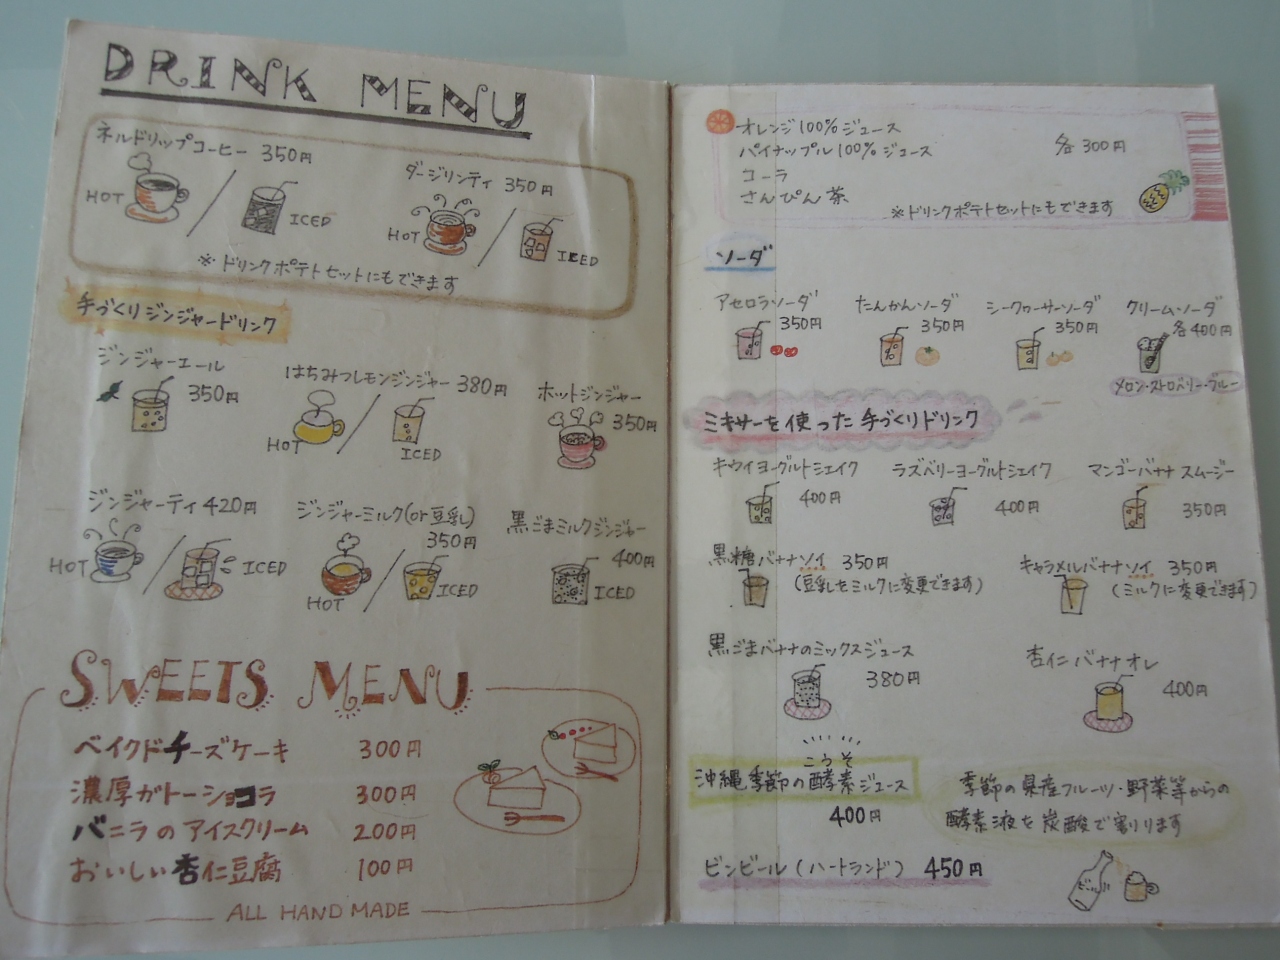 DRINK MENU
ネルドリップコーヒー 350円
HOT
ICED
ダージリンティ 350円
HOT
ICED
※ドリンクポテトセットにもできます
手づくりジンジャードリンク
ジンジャーエール
350円
はちみつレモンジンジャー 380円
HOT
ICED
ホットジンジャー
350円
ジンジャーティ 420円
HOT
ICED
ジンジャーミルク(or豆乳)
350円
HOT
ICED
黒ごまミルクジンジャー
400円
ICED
SWEETS MENU
ベイクドチーズケーキ 300円
濃厚ガトーショコラ 300円
バニラのアイスクリーム 200円
おいしい杏仁豆腐 100円
ALL HAND MADE
オレンジ100%ジュース
パイナップル100%ジュース
コーラ
さんぴん茶
各300円
※ドリンクポテトセットにもできます
ソーダ
アセロラソーダ
350円
たんかんソーダ
350円
シークヮーサーソーダ
350円
クリームソーダ
各400円
メロン・ストロベリー・ブルー
ミキサーを使った手づくりドリンク
キウイヨーグルトシェイク
400円
ラズベリーヨーグルトシェイク
400円
マンゴーバナナスムージー
350円
黒糖バナナソイ 350円
(豆乳をミルクに変更できます)
キャラメルバナナソイ 350円
(ミルクに変更できます)
黒ごまバナナのミックスジュース
380円
杏仁バナナオレ
400円
こうそ
沖縄季節の酵素ジュース
400円
季節の県産フルーツ・野菜等からの
酵素液を炭酸で割ります
ビンビール(ハートランド) 450円
ビール